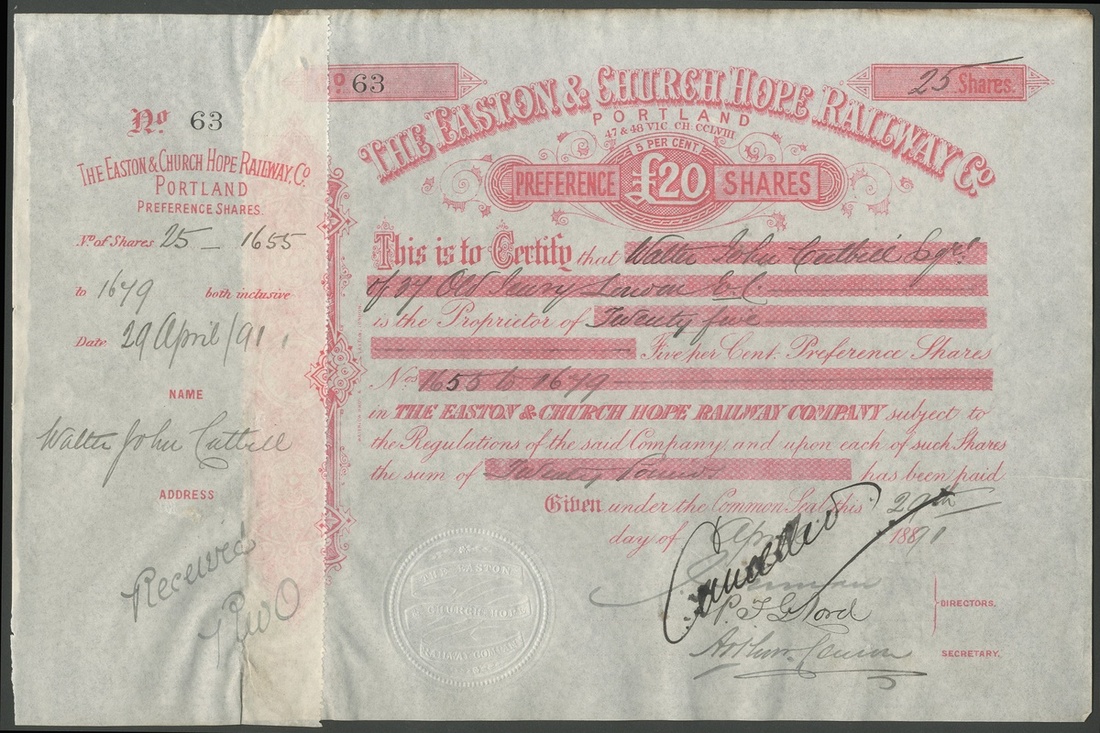 No 63
THE EASTON & CHURCH HOPE RAILWAY, Co
PORTLAND
PREFERENCE SHARES.
No of Shares 25 – 1655
to 1679 both inclusive
Date 29 April /91
NAME
Walter John Cutbill
ADDRESS
Received
o 63
25 Shares.
THE EASTON & CHURCH HOPE RAILWAY Co
PORTLAND
47 & 48 VIC. CH. CCLVIII
5 PER CENT.
PREFERENCE £20 SHARES
This is to Certify that Walter John Cutbill Esqre
of 37 Old Jewry London E.C.
is the Proprietor of Twenty five
Five per Cent: Preference Shares
Nos 1655 to 1679
in THE EASTON & CHURCH HOPE RAILWAY COMPANY subject to
the Regulations of the said Company and upon each of such Shares
the sum of Twenty Pounds has been paid
Given under the Common Seal this 29th
day of April 1891
Cancelled
DIRECTORS.
SECRETARY.
THE EASTON
& CHURCH HOPE
RAILWAY COMPANY